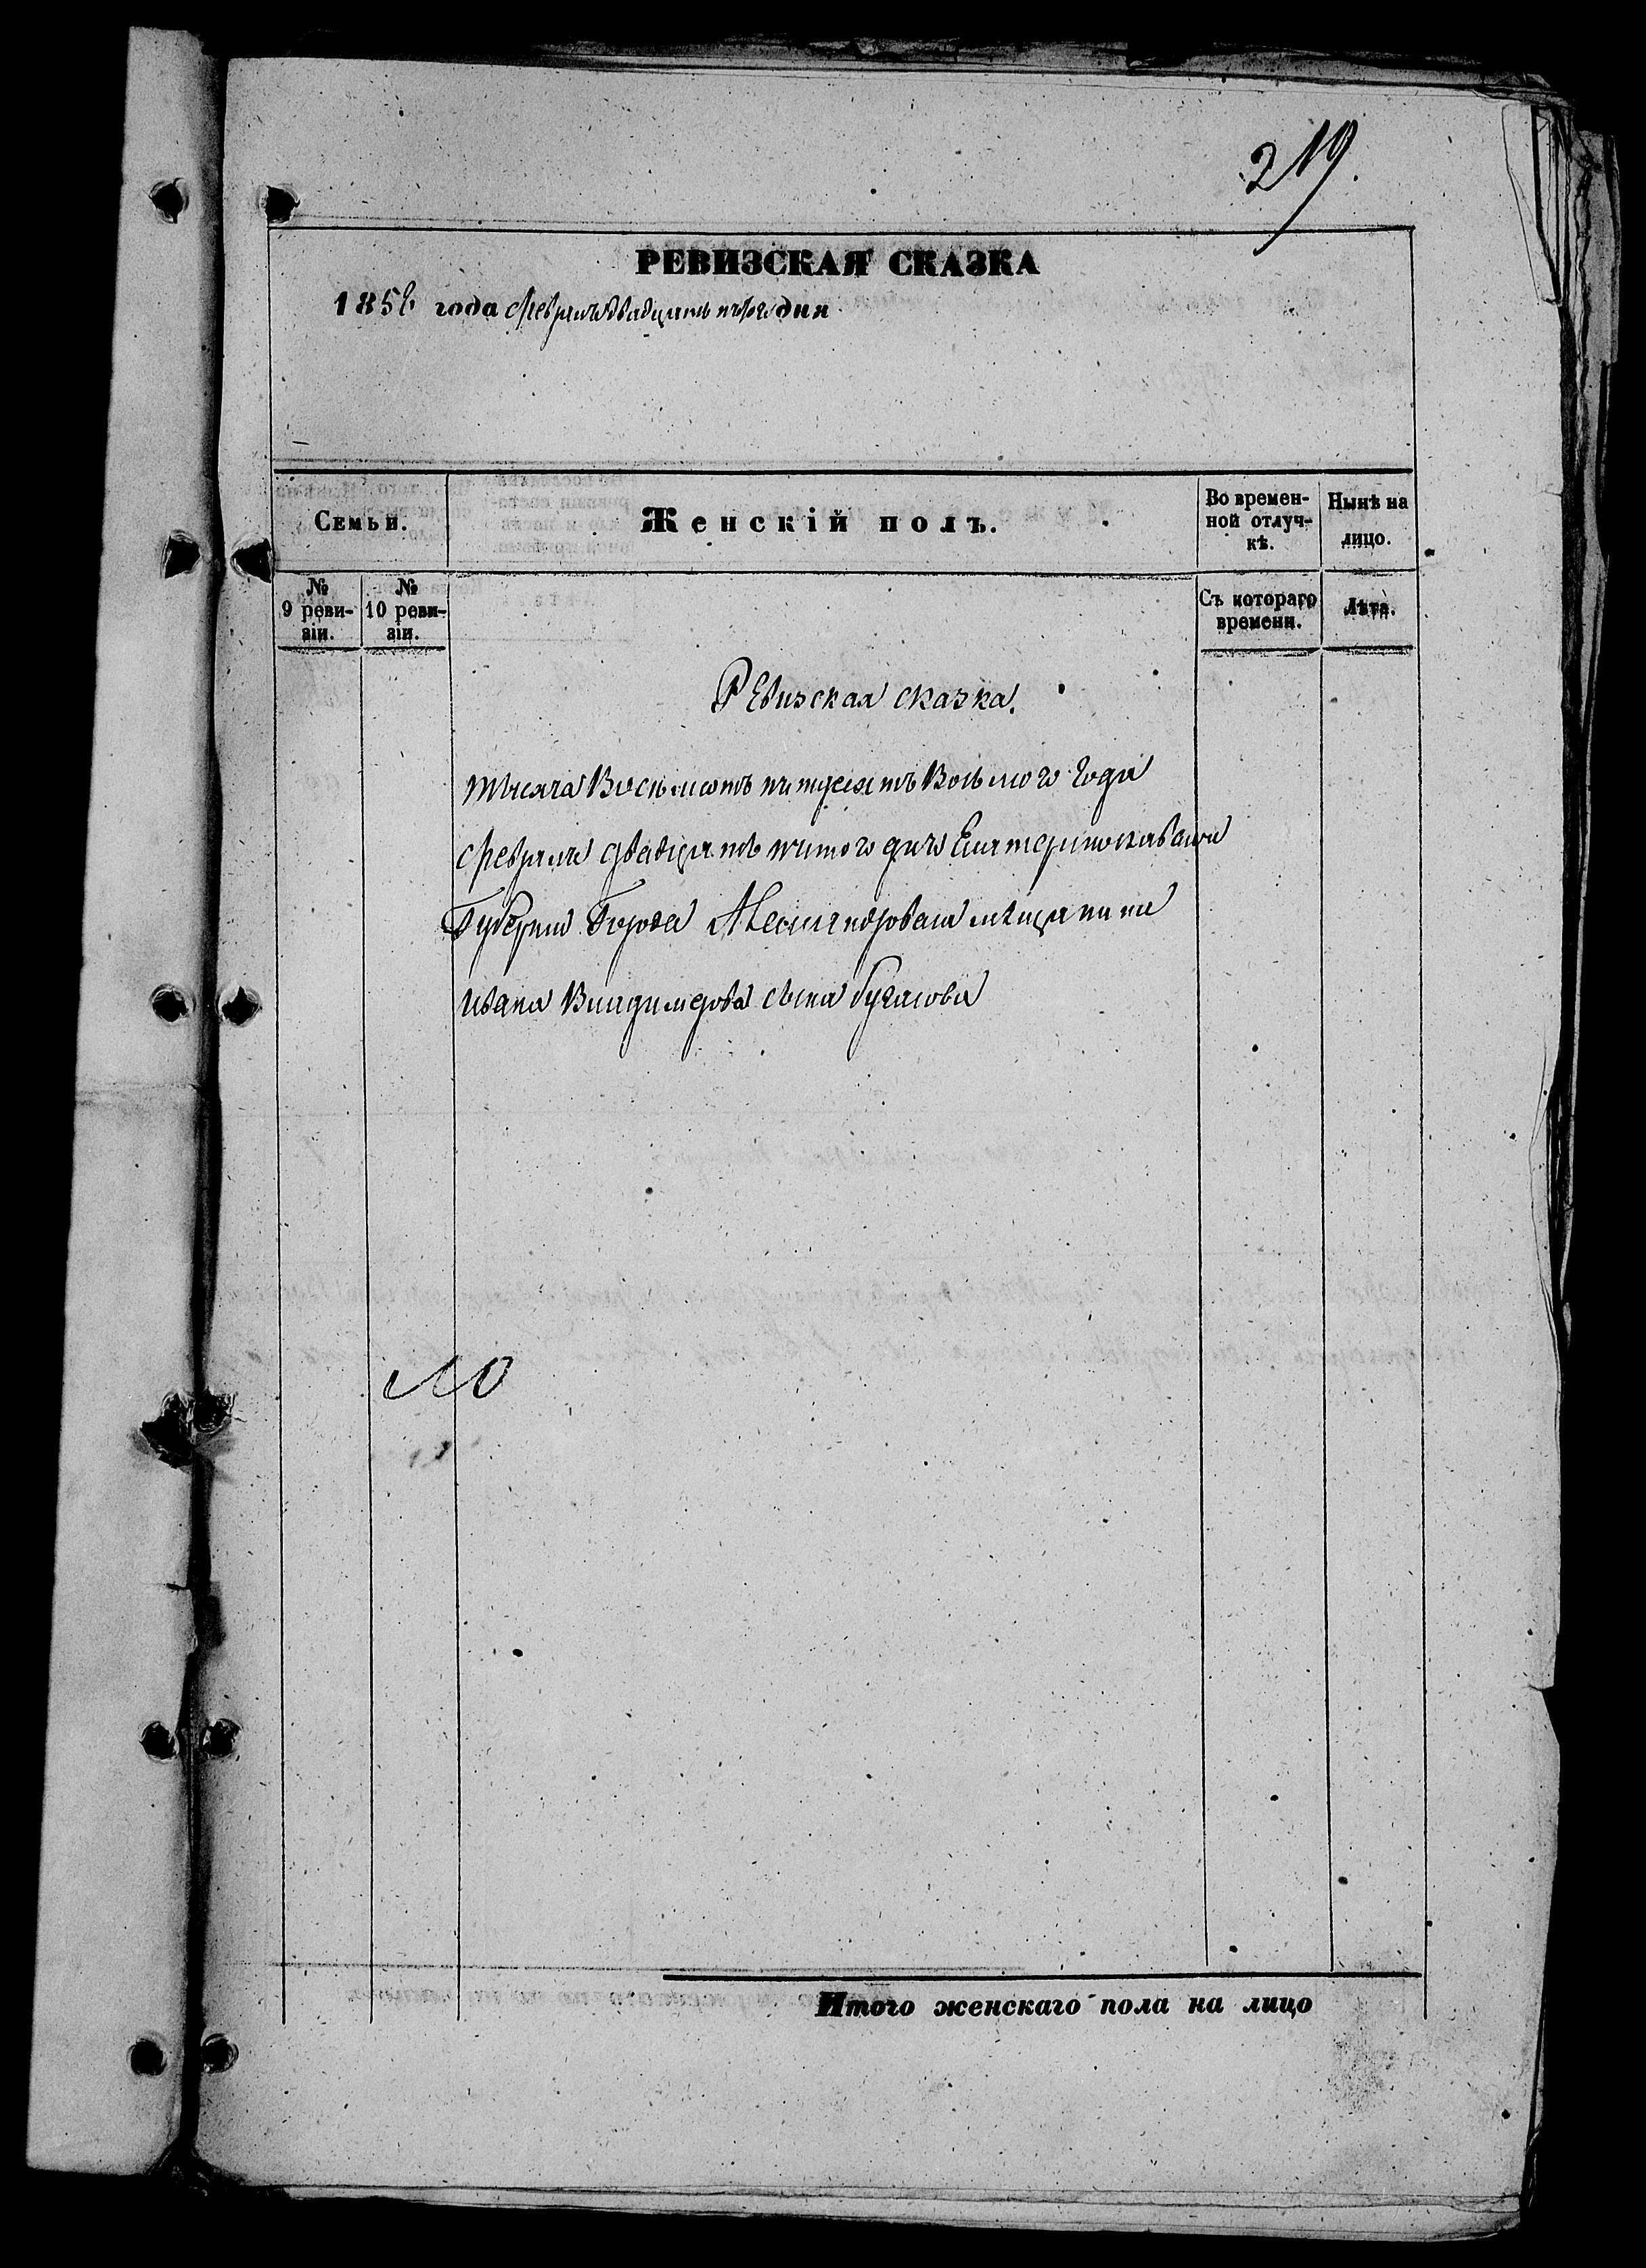 219.
РЕВИЗСКАЯ СКАЗКА
1858 года февраля двадцать пятого дня
Семьи.
Женскій полъ.
Во времен-
ной отлуч-
кѣ.
Нынѣ на
лицо.
№
9 реви-
зіи.
№
10 реви-
зіи.
Съ котораго
времени.
Лѣта.
Ревизская сказка.
тысяча Восемьсотъ пятдесятъ Восьмого года
февраля двадцать пятого дня Екатеринославской
Губерніи Города Александровска мѣщанина
ивана Владимерова сына
Итого женскаго пола на лицо